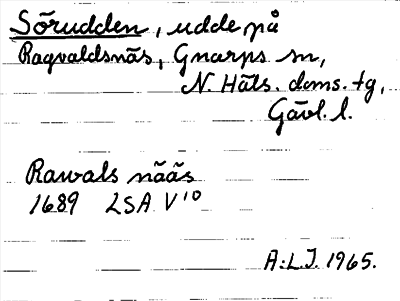 Sörudden, udde på
Ragvaldsnäs, Gnarps sn,
N. Häls. doms. tg,
Gävl. l.
Rawals nääs
1689 LSA V¹⁰
A:L.J. 1965.